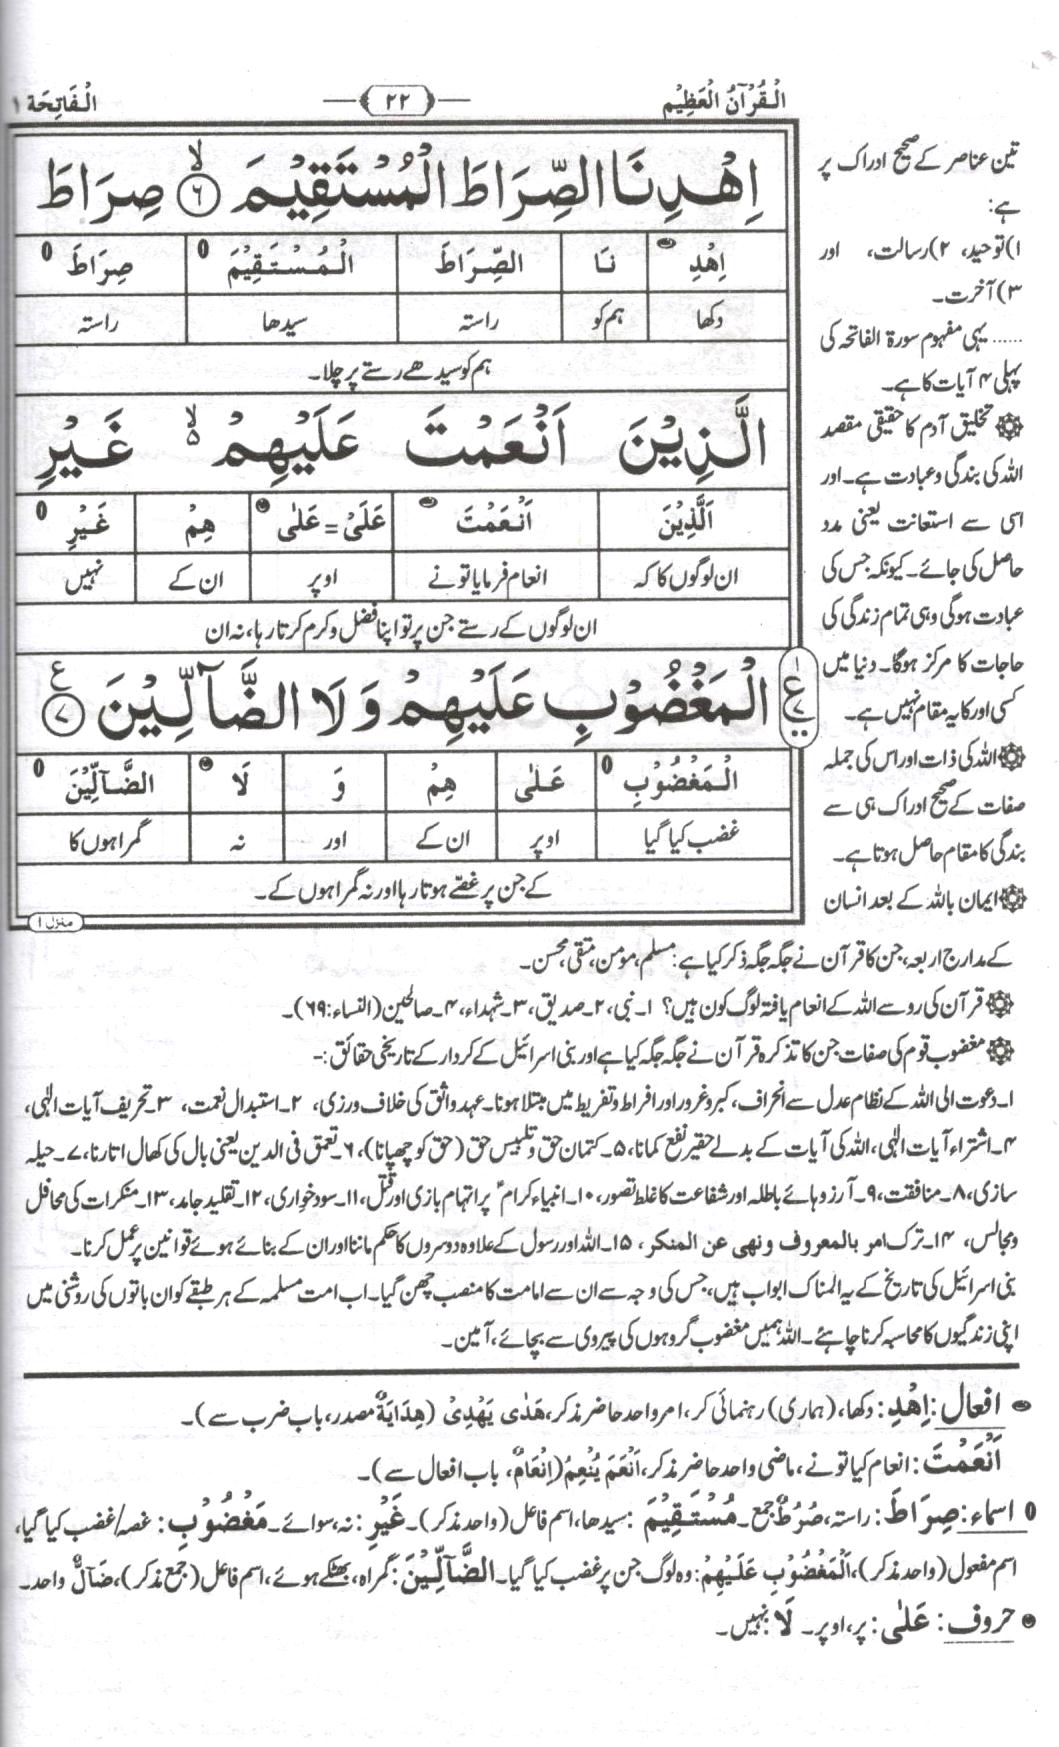 الْقُرْآنُ الْعَظِيْم
۲۲
الْفَاتِحَة ۱
اِهْدِنَا الصِّرَاطَ الْمُسْتَقِيْمَ ۙ ۶ صِرَاطَ
اِهْدِ نَا الصِّرَاطَ الْمُسْتَقِيْمَ صِرَاطَ
دکھا ہم کو راستہ سیدھا راستہ
ہم کو سیدھے رستے پر چلا۔
الَّذِيْنَ اَنْعَمْتَ عَلَيْهِمْ ۙ۵ غَيْرِ
الَّذِيْنَ اَنْعَمْتَ عَلَىْ = عَلٰى هِمْ غَيْرِ
ان لوگوں کا کہ انعام فرمایا تو نے اوپر ان کے نہیں
ان لوگوں کے رستے جن پر تو اپنا فضل و کرم کرتا رہا، نہ ان
الْمَغْضُوْبِ عَلَيْهِمْ وَلَا الضَّآلِّيْنَ ۷ ع
الْمَغْضُوْبِ عَلٰى هِمْ وَ لَا الضَّآلِّيْنَ
غضب کیا گیا اوپر ان کے اور نہ گمراہوں کا
کے جن پر غصّے ہوتا رہا اور نہ گمراہوں کے۔
منزل ۱
تین عناصر کے صحیح ادراک پر
ہے:
۱) توحید، ۲) رسالت، اور
۳) آخرت۔
...... یہی مفہوم سورۃ الفاتحہ کی
پہلی ۴ آیات کا ہے۔
تخلیق آدم کا حقیقی مقصد
اللہ کی بندگی و عبادت ہے۔ اور
اسی سے استعانت یعنی مدد
حاصل کی جائے۔ کیونکہ جس کی
عبادت ہوگی وہی تمام زندگی کی
حاجات کا مرکز ہوگا۔ دنیا میں
کسی اور کا یہ مقام نہیں ہے۔
اللہ کی ذات اور اس کی جملہ
صفات کے صحیح ادراک ہی سے
بندگی کا مقام حاصل ہوتا ہے۔
ایمان باللہ کے بعد انسان
کے مدارج اربعہ، جن کا قرآن نے جگہ جگہ ذکر کیا ہے: مسلم، مومن، متقی، محسن۔
قرآن کی رو سے اللہ کے انعام یافتہ لوگ کون ہیں؟ ۱۔ نبی، ۲۔ صدیق، ۳۔ شہداء، ۴۔ صالحین (النساء: ۶۹)۔
مغضوب قوم کی صفات جن کا تذکرہ قرآن نے جگہ جگہ کیا ہے اور بنی اسرائیل کے کردار کے تاریخی حقائق :-
۱۔ دعوت الی اللہ کے نظام عدل سے انحراف، کبر و غرور اور افراط و تفریط میں مبتلا ہونا۔ عہد واثق کی خلاف ورزی، ۲۔ استبدال نعمت، ۳۔ تحریف آیات الٰہی،
۴۔ اشتراء آیات الٰہی، اللہ کی آیات کے بدلے حقیر نفع کمانا، ۵۔ کتمان حق و تلبیس حق (حق کو چھپانا)، ۶۔ تعمق فی الدین یعنی بال کی کھال اتارنا، ۷۔ حیلہ
سازی، ۸۔ منافقت، ۹۔ آرزوہائے باطلہ اور شفاعت کا غلط تصور، ۱۰۔ انبیاء کرام ؑ پر اتہام بازی اور قتل، ۱۱۔ سودخواری، ۱۲۔ تقلید جامد، ۱۳۔ منکرات کی محافل
و مجالس، ۱۴۔ ترک امر بالمعروف و نہی عن المنکر، ۱۵۔ اللہ اور رسول کے علاوہ دوسروں کا حکم ماننا اور ان کے بنائے ہوئے قوانین پر عمل کرنا۔
بنی اسرائیل کی تاریخ کے یہ المناک ابواب ہیں، جس کی وجہ سے ان سے امامت کا منصب چھن گیا۔ اب امت مسلمہ کے ہر طبقے کو ان باتوں کی روشنی میں
اپنی زندگیوں کا محاسبہ کرنا چاہئے۔ اللہ ہمیں مغضوب گروہوں کی پیروی سے بچائے، آمین۔
افعال: اِهْدِ: دکھا، (ہماری) رہنمائی کر، امر واحد حاضر مذکر، هَدٰى يَهْدِىْ (هِدَايَةٌ مصدر، باب ضرب سے)۔
اَنْعَمْتَ: انعام کیا تو نے، ماضی واحد حاضر مذکر، اَنْعَمَ يُنْعِمُ (اِنْعَامٌ، باب افعال سے)۔
اسماء: صِرَاطَ: راستہ، صُرُطٌ جمع۔ مُسْتَقِيْمَ: سیدھا، اسم فاعل (واحد مذکر)۔ غَيْرِ: نہ، سوائے۔ مَغْضُوْبِ: غصہ/غضب کیا گیا،
اسم مفعول (واحد مذکر)، اَلْمَغْضُوْبِ عَلَيْهِمْ: وہ لوگ جن پر غضب کیا گیا۔ الضَّآلِّيْنَ: گمراہ، بھٹکے ہوئے، اسم فاعل (جمع مذکر)، ضَآلٌّ واحد۔
حروف: عَلٰى: پر، اوپر۔ لَا: نہیں۔